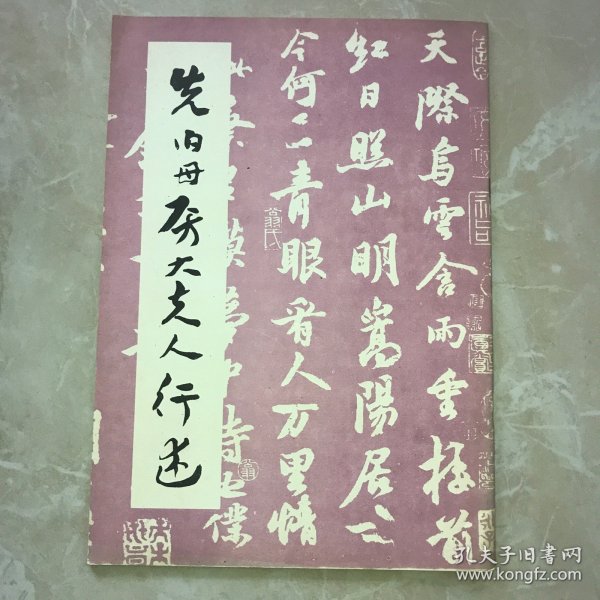 天際烏雲含雨重樓前
紅日照山明嵩陽居士
今何在青眼看人万里情
此蔡君謨夢中詩也僕
先伯母房大夫人行述
孔夫子旧书网
www.kongfz.com